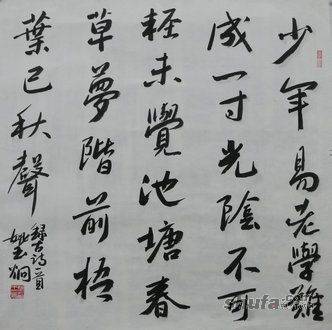 少年易老學難
成一寸光陰不可
輕未覺池塘春
草夢階前梧
葉已秋聲
錄古詩一首
姚玉炯